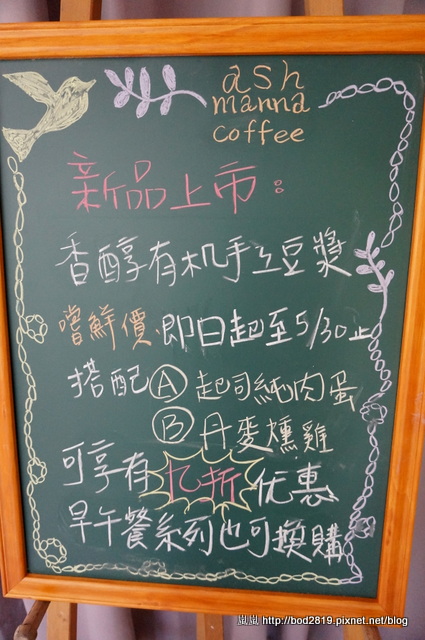 ash
manna
coffee
新品上市:
香醇有机手工豆漿
嚐鮮價 即日起至5/30止
搭配Ⓐ 起司純肉蛋
Ⓑ 丹麥燻雞
可享有 折优惠
早午餐系列也可換購
嵐嵐 http://bod2819.pixnet.net/blog